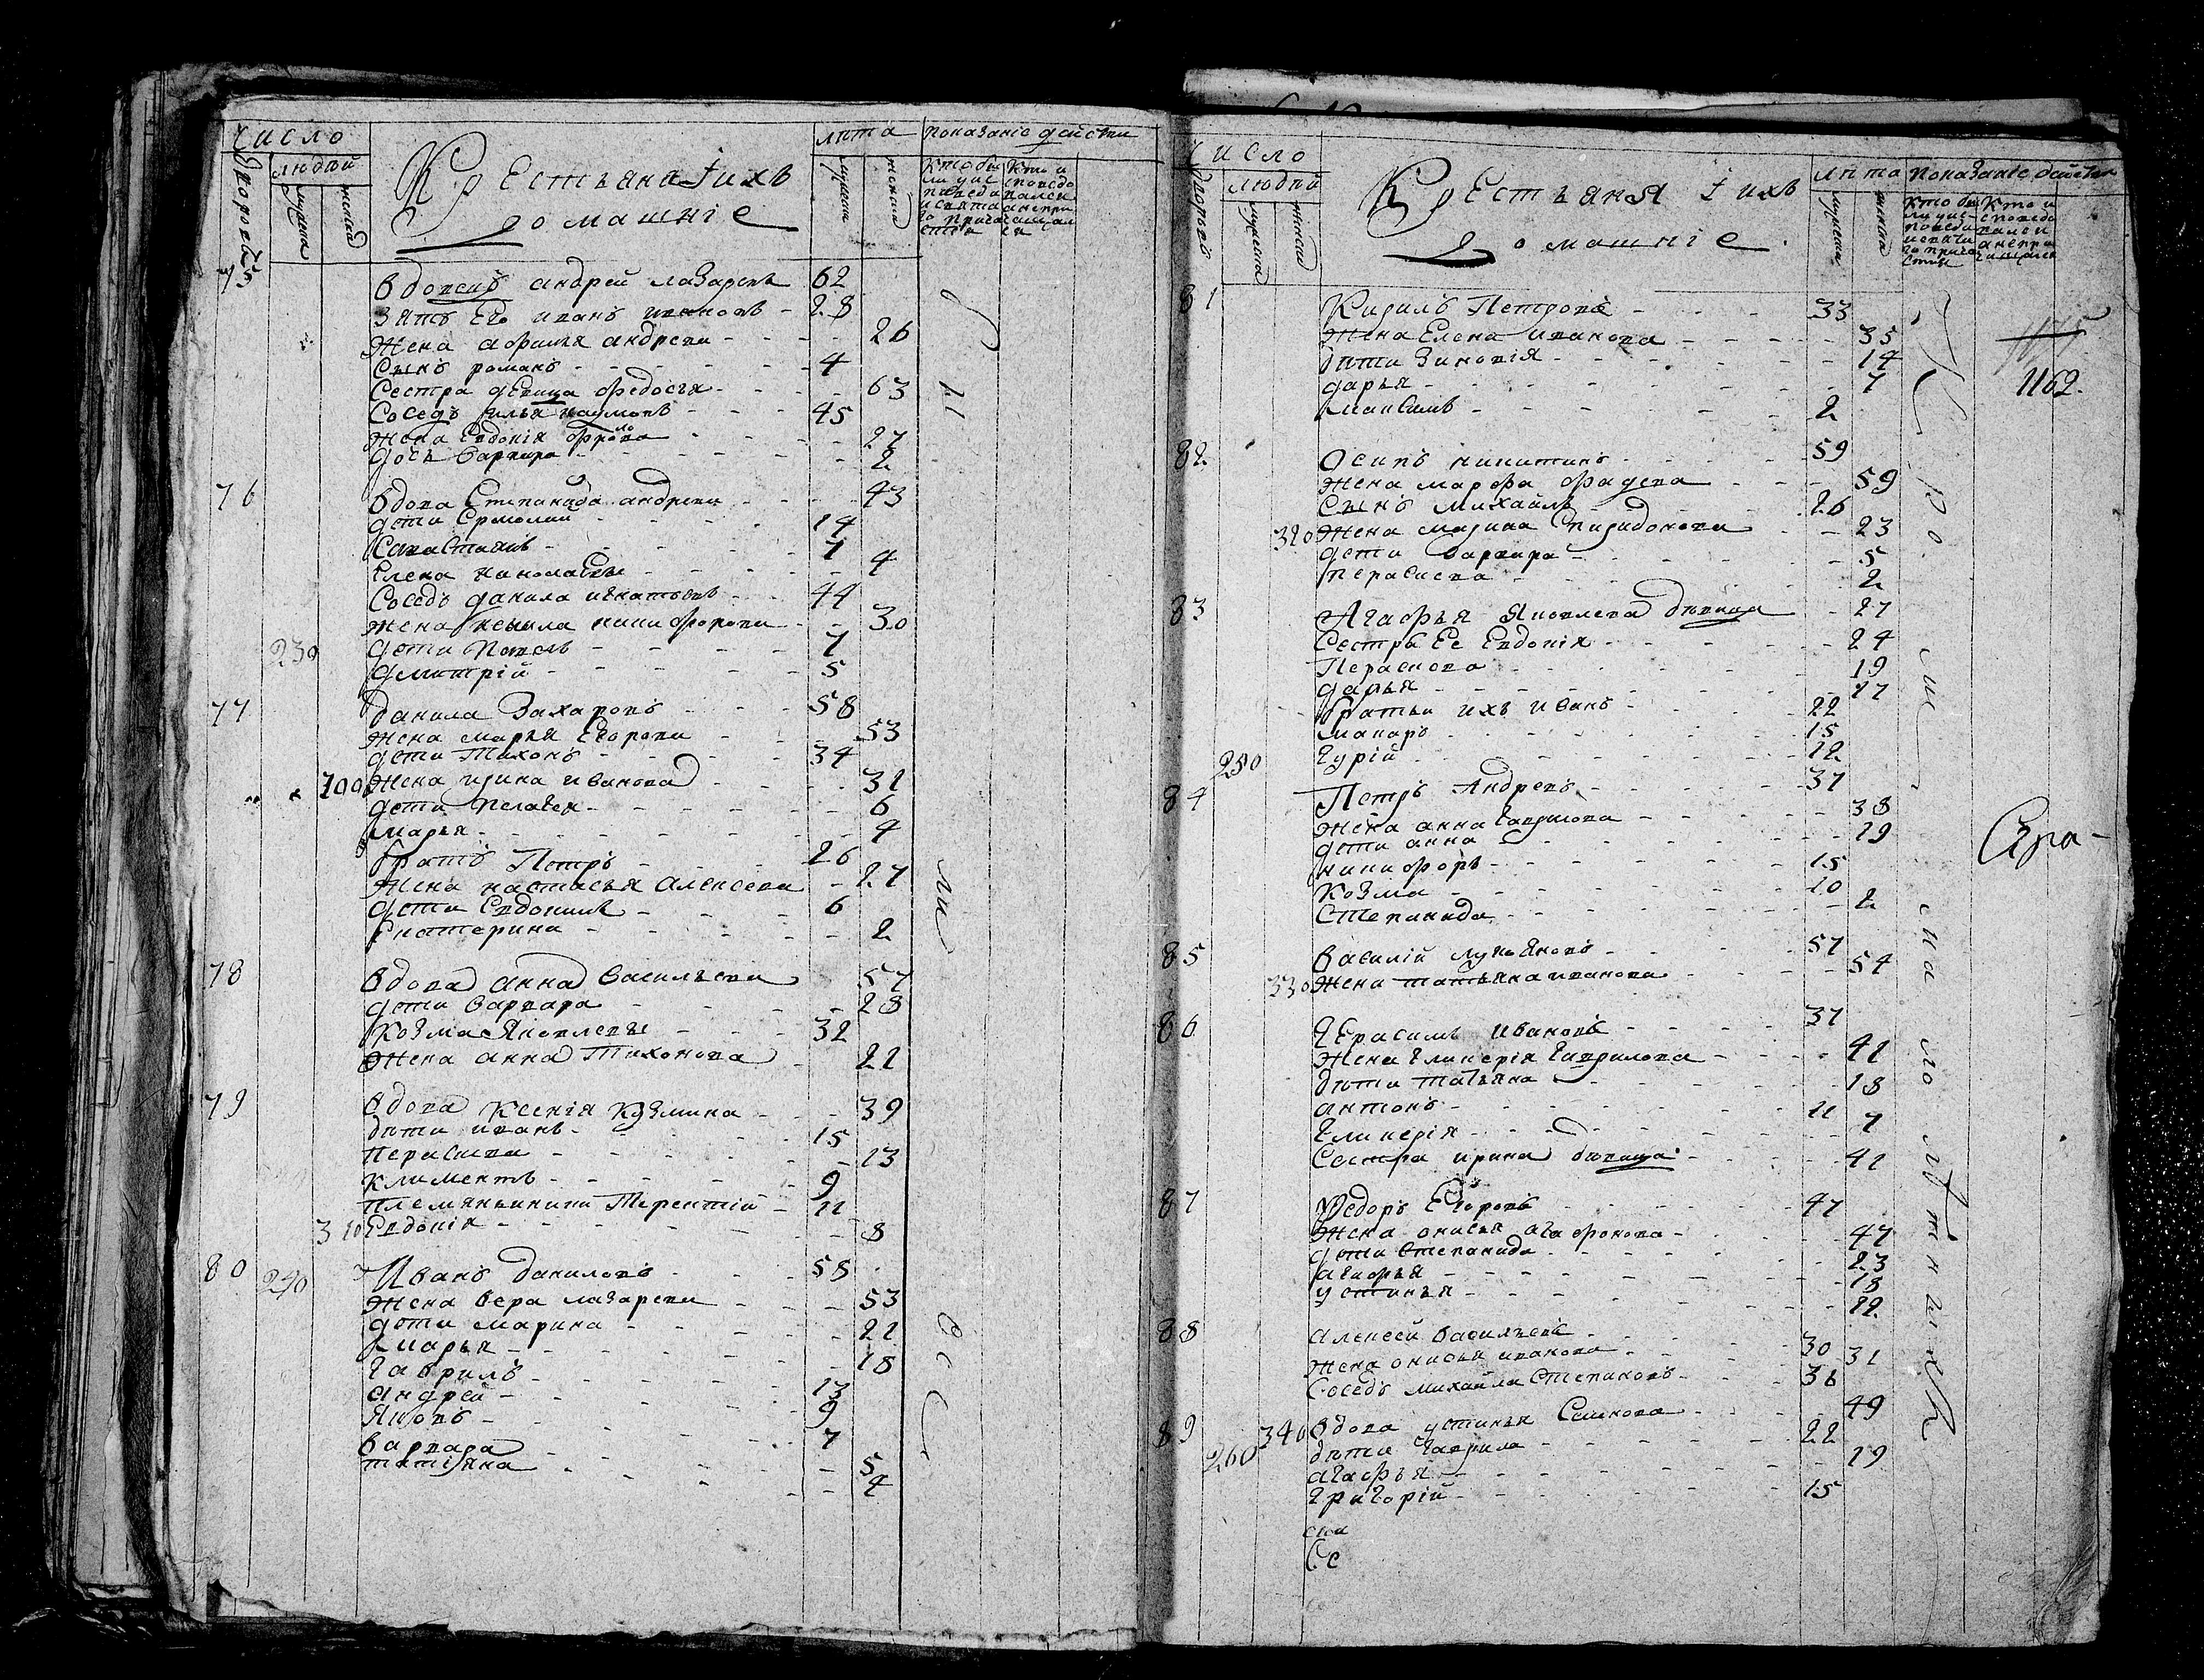 Число
Дворовъ
людей
мужеска
женска
Крестьяна i ихъ
домашнiе
лѣта
мужеска
женска
показанiе действи
75
вдовецъ андрей лазаревъ 62
зять Его иванъ ивановъ - 28
жена афимья андреева - - - 26
Сынъ романъ - - - 4
Сестра девица федосья - - - 63
Соседъ илья наумовъ - - - 45
жена Евдокiя фролова - - - 27
дочь варвара - - - 2
76 вдова Степанида андреева - - - 43
дети Ермолай - - - 14
Савастьянъ - - - 7
Елена николаевы - - - 4
Соседъ данила игнатьевъ - - 44
жена Ксенила никифорова - - 30
230 дети Павелъ - - - 7
дмитрiй - - - 5
77 данила Захаровъ - - - 58
жена марья Егорова - - 53
дети Тихонъ - - - 34
300 жена ирина иванова - - - 31
дети Пелагея - - - 6
марья - - - 4
братъ Петръ - - - 26
жена настасья алексеева - 27
дети Евдокимъ - - - 6
Екатерина - - - 2
78 вдова анна васильева 57
дети варвара - - - 28
Козма Яковлевы - - - 32
Жена анна Тихонова - 22
79 вдова Ксенiя Кузмина - - - 39
дѣти иванъ - - - 15
Параскева - - - 13
климентъ - - - 9
племянники Терентiй - 11
310 Евдокiя - - - 8
80 240 Иванъ даниловъ - - - 58
жена вера лазарева - - - 53
дети марина - - - 21
марья - - - 18
гаврилъ - - - 13
андрей - - - 9
Яковъ - - - 7
варвара - - - 5
татiяна - - - 4
Число
Дворовъ
людей
мужеска
женска
Крестьяня i ихъ
домашнiе
лѣта
мужеска
женска
показанiе действи
81 Кирилъ Петровъ - - - 33
жена Елена иванова - - - 35
дѣти Зиновiя - - - 14
дарья - - - 7
максимъ - - - 2
1162.
82 Осипъ никитинъ - - - 59
жена марфа фадеева - - - 59
Сынъ михайлъ - - - 26
320 жена марина Спиридонова - - 23
дети варвара - - - 5
параскева - - - 2
83 Агафья Яковлева дѣвица - 27
Сестра Ее Евдокiя - - - 24
Параскева - - - 19
дарья - - - 17
братьи ихъ иванъ - - - 22
макаръ - - - 15
250 гурiй - - - 12
84 Петръ Андреевъ - - - 37
жена анна гаврилова - - - 38
дети анна - - - 19
никифоръ - - - 15
Козма - - - 10
Степанида - - - 2
85 василiй лукьяновъ - - - 57
330 жена татьяна иванова - - - 54
86 Герасимъ ивановъ - - - 37
жена гликерiя гаврилова - - - 41
дѣти татьяна - - - 18
антонъ - - - 11
гликерiя - - - 7
Сестра ирина дѣвица - - - 41
87 Федоръ Егоровъ - - - 47
жена анисья агафонова - - - 47
дети Степанида - - - 23
агафья - - - 18
устинья - - - 12
88 алексей васильевъ - - - 30
жена анисья иванова - - - 31
Соседъ михайла Степановъ - - - 36
89 340 вдова устинья Семенова - - - 49
260 дѣти гаврила - - - 22
агафья - - - 19
григорiй - - - 15
Сiи
Всѣ
были
Кромѣ малолѣтныхъ